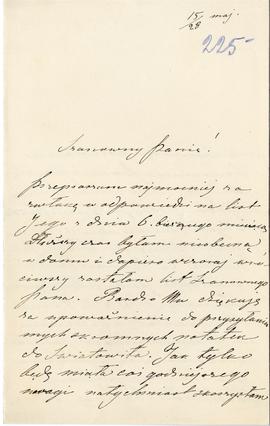 15/28 maj.
225
Szanowny Panie!
Przepraszam najmocniej za
zwłokę w odpowiedzi na list
Jego z dnia 6. bieżącego miesiąca
Dłuższy czas byłam nieobecną
w domu i dopiero wczoraj wró-
ciwszy zastałam list Szanownego
Pana. Bardzo Mu dziękuję
za upoważnienie do przysyłania
mych skromnych notatek
do Światowita. Jak tylko
będę miała coś godniejszego
uwagi natychmiast skorzystam